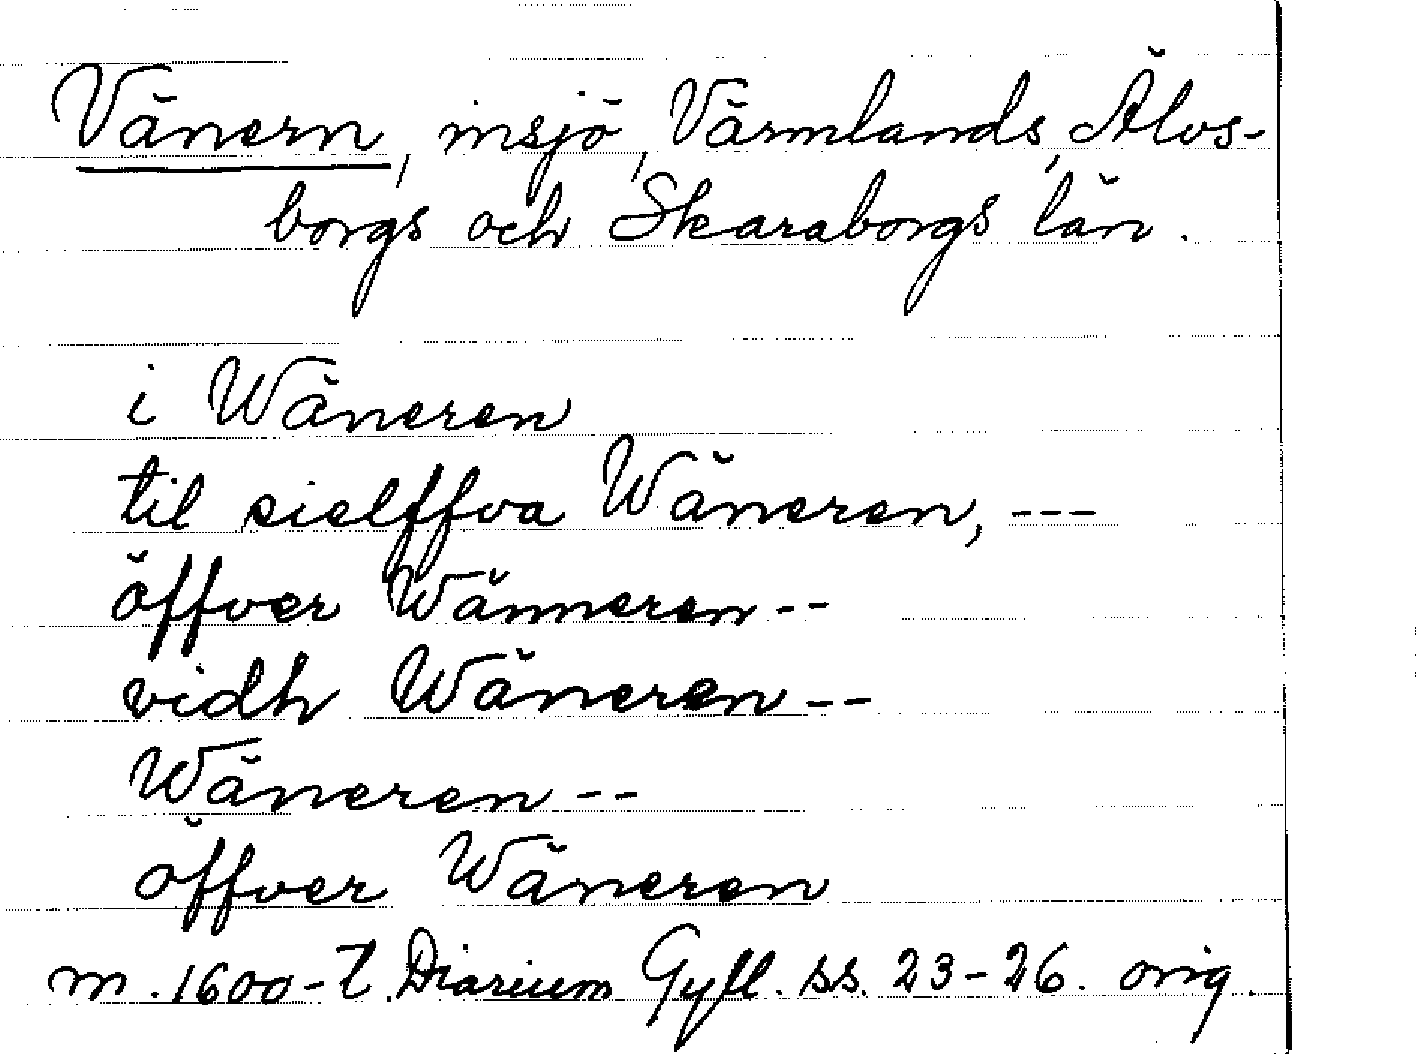 Vänern, insjö, Värmlands, Älvs-
borgs och Skaraborgs län.
i Wäneren
til sielffva Wäneren, ---
öffver Wänneren --
vidh Wäneren --
Wäneren --
öffver Wäneren
m. 1600-t. Diarium Gyll. ss. 23-26. orig.